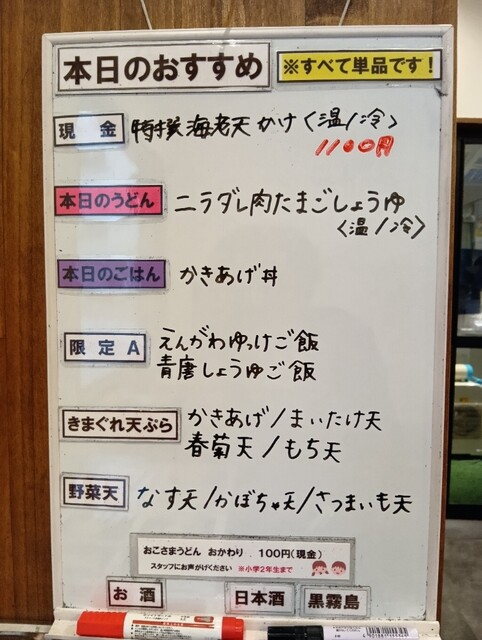 本日のおすすめ ※すべて単品です！
現金 特撰海老天かけ〈温/冷〉
1100円
本日のうどん ニラダレ肉たまごしょうゆ
〈温/冷〉
本日のごはん かきあげ丼
限定A えんがわゆっけご飯
青唐しょうゆご飯
きまぐれ天ぷら かきあげ/まいたけ天
春菊天/もち天
野菜天 なす天/かぼちゃ天/さつまいも天
おこさまうどん おかわり．100円(現金)
スタッフにお声がけください ※小学2年生まで
お酒 日本酒 黒霧島